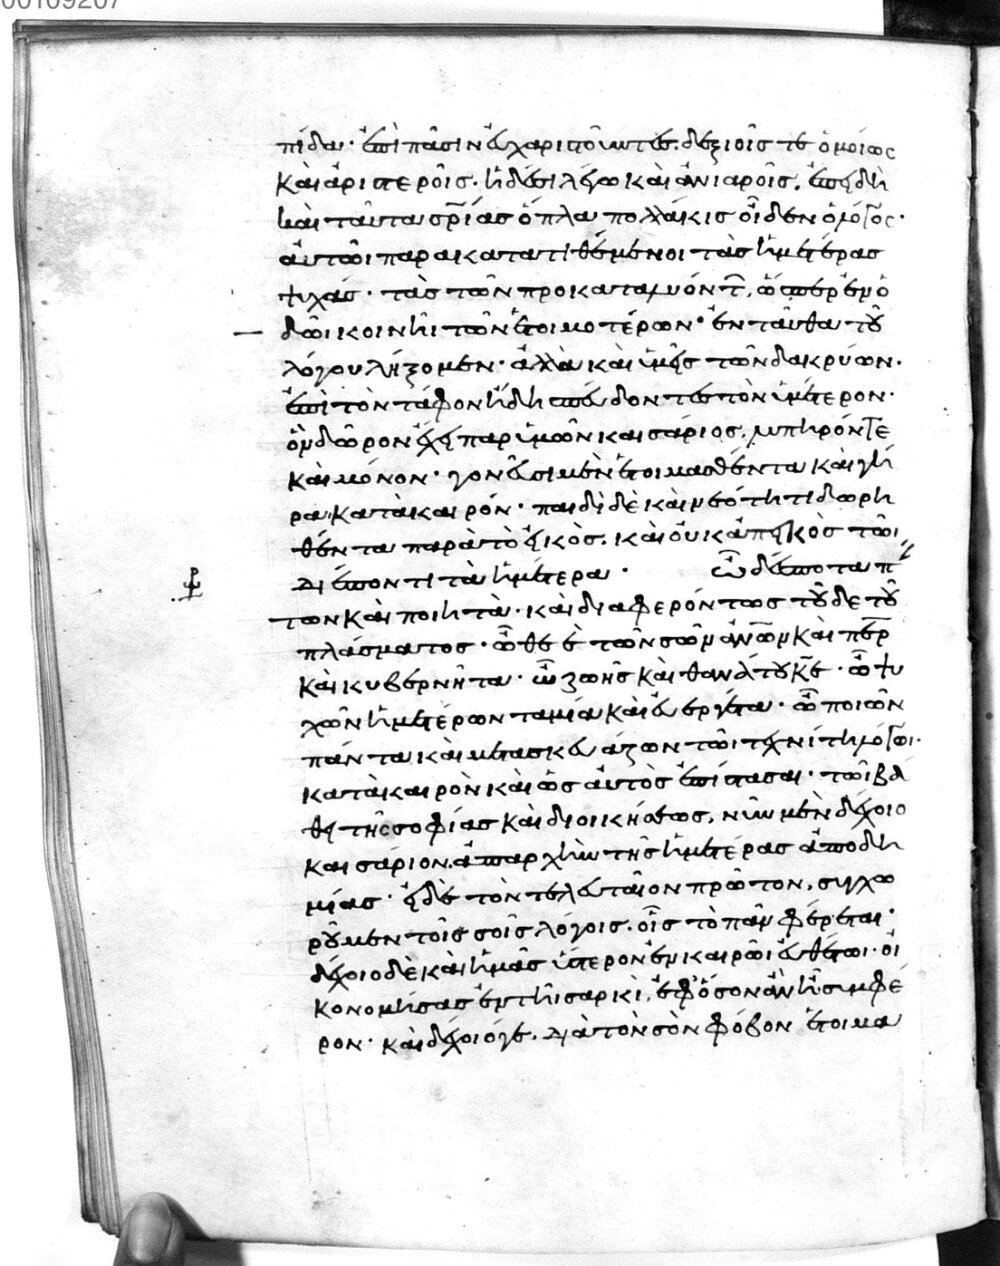 00109207
πίδα· ἐπὶ πᾶσιν εὐχαριστοῦντες. δεξιοῖς τε ὁμοίως
καὶ ἀριστεροῖς. ἡδέσι λέγω καὶ ἀνιαροῖς. ἐπειδὴ
καὶ ταῦτα σρίας ὅπλα πολλάκις οἶδεν ὁ λόγος·
αὐτῶι παρακατατιθέμενοι τὰς ἡμετέρας
ψυχάς· τὰς τῶν προκαταλυόντ, ὥσπερ ἐν ὁ
δῶι κοινῆι τῶν ἑτοιμοτέρων· ἐνταῦθα τοῦ
λόγου λήξομεν· ἀλλὰ καὶ ὑμεῖς τῶν δακρύων.
ἐπὶ τὸν τάφον ἤδη σπεύδοντες τὸν ὑμέτερον·
ὃν δῶρον ἔχει παρ ὑμῶν καισάριος, λυπηρόν τε
καὶ μόνον· γονεῦσι μὲν ἑτοιμασθέντα καὶ γή
ρα κατὰ καιρόν· παιδὶ δὲ καὶ νεότητι δωρη
θέντα παρὰ τὸ εἰκὸς. καὶ οὐκ ἀπεικὸς τῶι
διέποντι τὰ ἡμέτερα· ὦ δέσποτα π
των καὶ ποιητὰ· καὶ διαφερόντως τοῦδε τοῦ
πλάσματος· ὦ θε ὲ τῶν σῶν ἀνων καὶ περ
καὶ κυβερνῆτα· ὦ ζωῆς καὶ θανάτου κε· ὦ ψυ
χῶν ἡμετέρων ταμία καὶ εὐεργέτα· ὦ ποιῶν
πάντα καὶ μετασκευάζων τῶι τεχνίτη λόγωι·
κατὰ καιρὸν καὶ ὡς αὐτὸς ἐπίστασαι· τῶι βά
θει τῆς σοφίας καὶ διοικήσεως. νῦν μὲν δέχοιο
καισάριον. ἀπαρχὴν τῆς ἡμετέρας ἀποδη
μίας· εἰ δὲ τὸν τελευταῖον πρῶτον, συγχω
ροῦμεν τοῖς σοῖς λόγοις. οἷς τὸ πᾶν φέρεται·
δέχοιο δὲ καὶ ἡμᾶς ὕστερον ἐν καιρῶι εὐθέτωι· οἰ
κονομήσας ἐν τῆι σαρκὶ, ἐφ ὅσον ἂν ἦ συμφέ
ρον· καὶ δέχοιό γε. διὰ τὸν σὸν φόβον ἑτοιμα